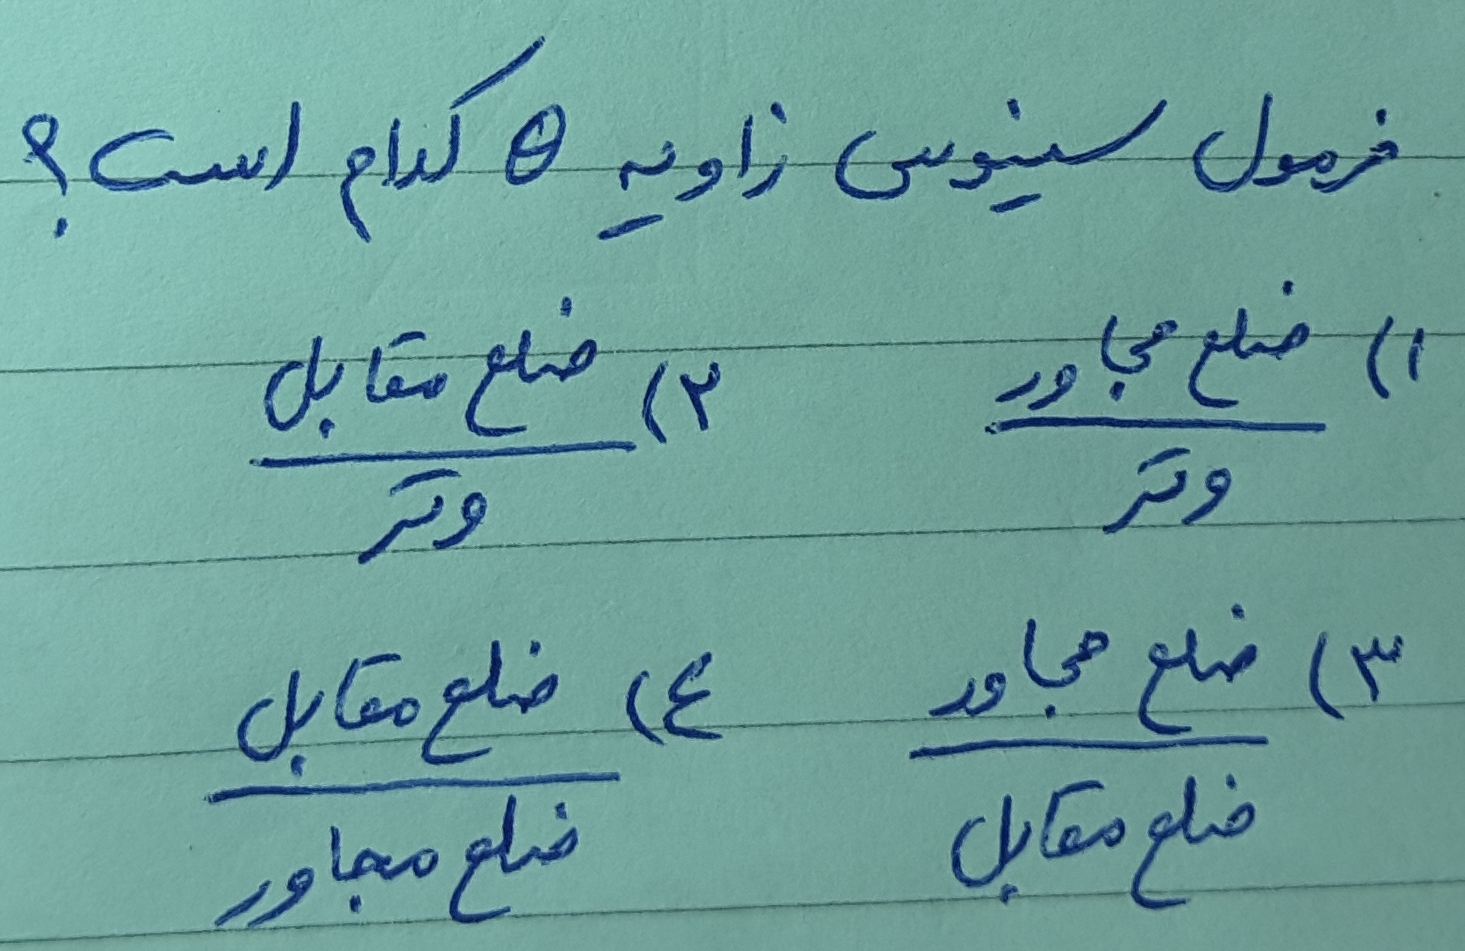 فرمول سینوس زاویه θ کدام است؟
۱) ضلع مجاور / وتر
۲) ضلع مقابل / وتر
۳) ضلع مجاور / ضلع مقابل
٤) ضلع مقابل / ضلع مجاور